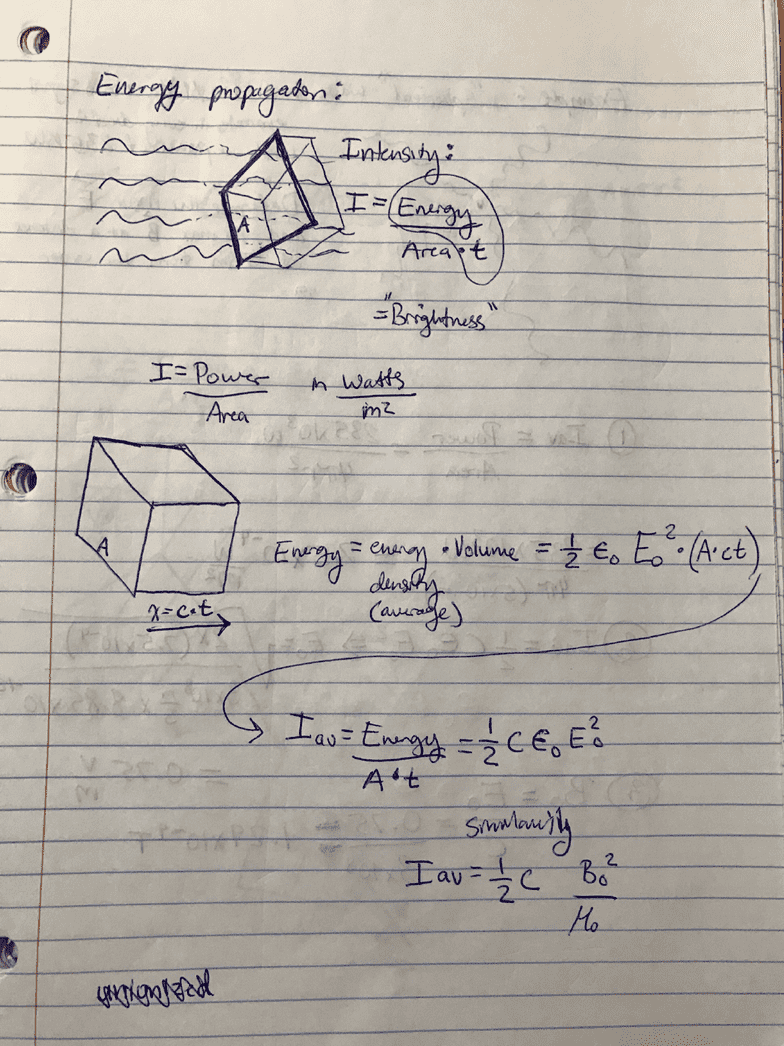 Energy propagaton:
Intensity:
A
I = Energy / Area • t
= "Brightness"
I = Power / Area in Watts / m2
A
x = c•t
Energy = energy density (average) • Volume = 1/2 ϵ₀ E₀² • (A•ct)
I av = Energy / A•t = 1/2 C ϵ₀ E₀²
similarily
I av = 1/2 C B₀² / μ₀